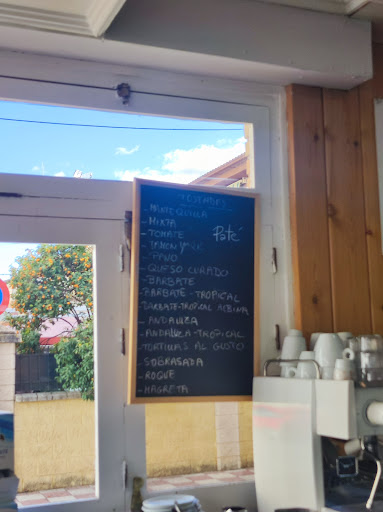 TOSTADAS
- MANTEQUILLA
- MIXTA
- TOMATE
Paté
- JAMON YORK
- PAVO
- QUESO CURADO
- BARBATE
- BARBATE - TROPICAL
- BARBATE-TROPICAL ALBINA
- ANDALUZA
- ANDALUZA - TROPICAL
- TORTILLAS AL GUSTO
- SOBRASADA
- ROQUE
- MAGRETA